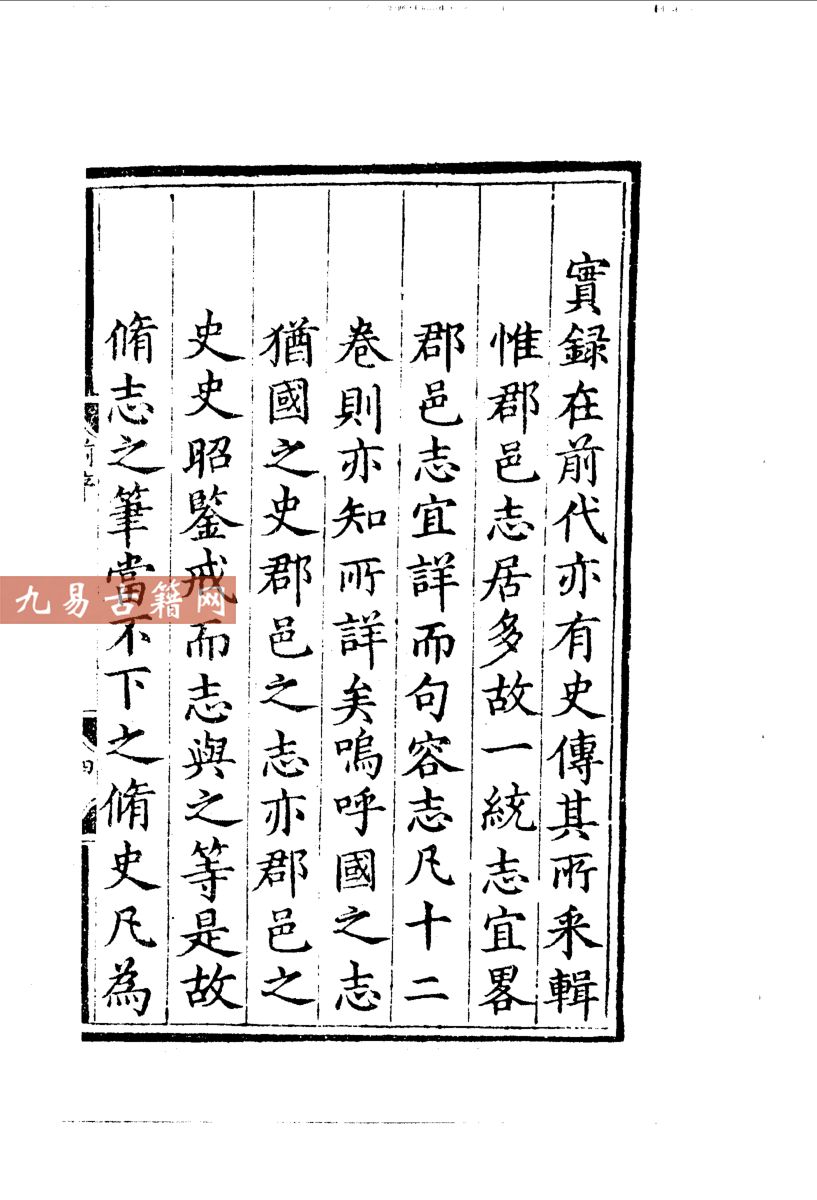 實録在前代亦有史傳其所采輯
惟郡邑志居多故一統志宜畧
郡邑志宜詳而句容志凡十二
卷則亦知所詳矣嗚呼國之志
猶國之史郡邑之志亦郡邑之
史史昭鑒戒而志與之等是故
脩志之筆當不下之脩史凡為
九易古籍网